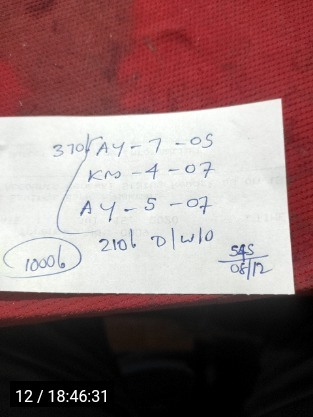 370/ AY-7-05
KM-4-07
AY-5-07
210/ D/W/O
1000/
545
08/12
12 / 18:46:31